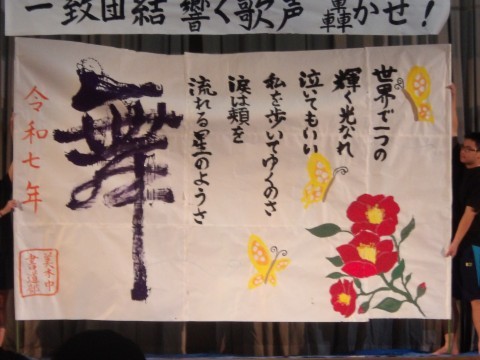 一致団結 響く歌声 轟かせ！
世界で一つの
輝く光なれ
泣いてもいい
私を歩いてゆくのさ
涙は頬を
流れる星のようさ
舞
令和七年
美木中
書道部